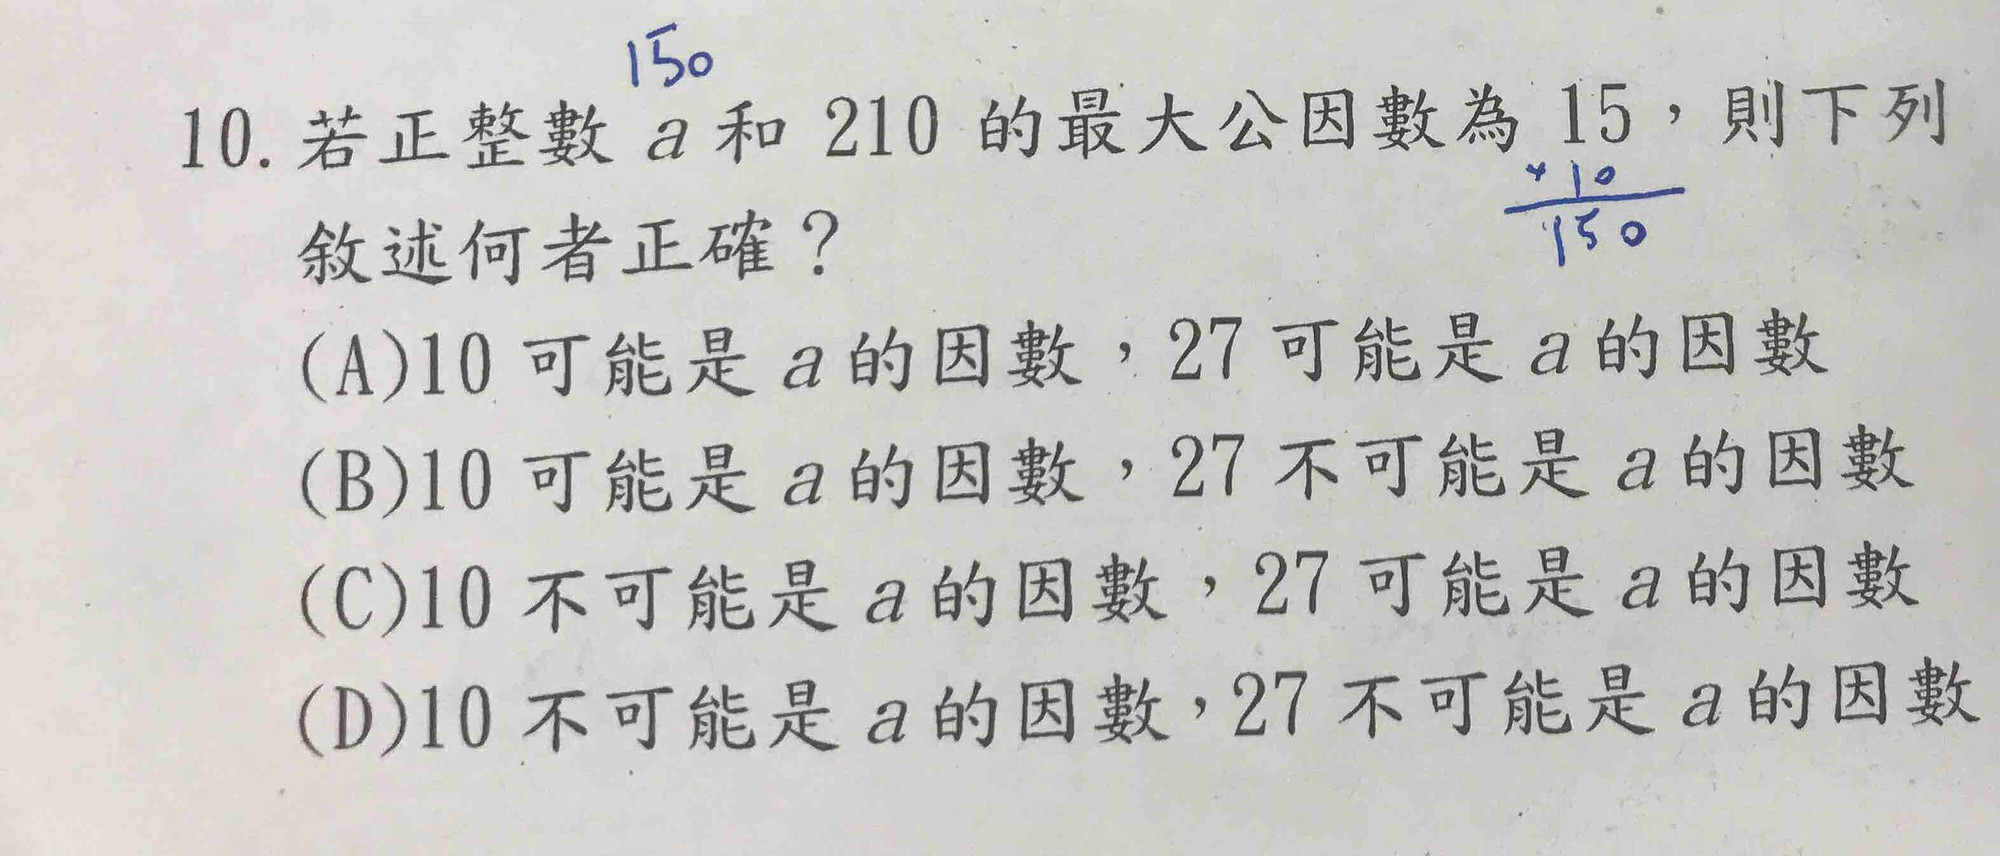 150
10. 若正整數 a 和 210 的最大公因數為 15，則下列
× 10
150
敘述何者正確？
(A)10 可能是 a 的因數，27 可能是 a 的因數
(B)10 可能是 a 的因數，27 不可能是 a 的因數
(C)10 不可能是 a 的因數，27 可能是 a 的因數
(D)10 不可能是 a 的因數，27 不可能是 a 的因數